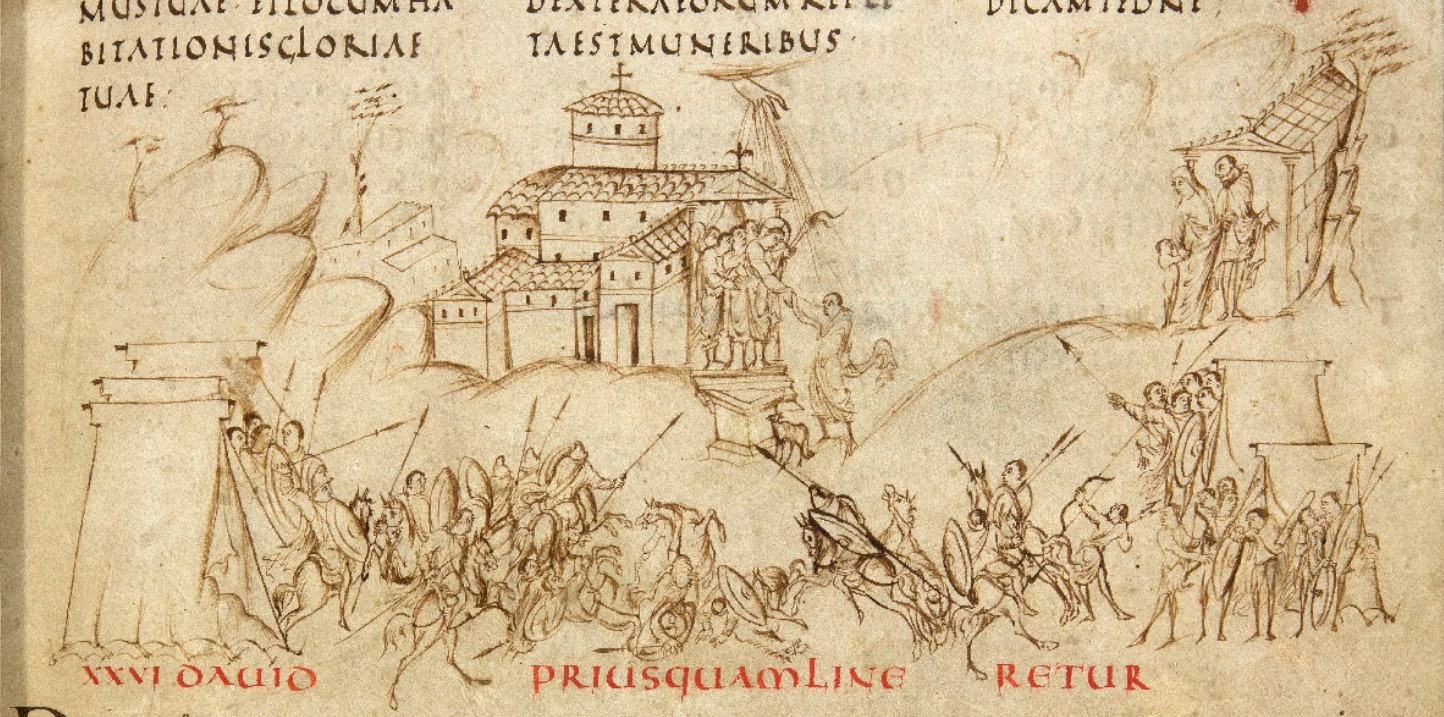 MUSTUAE·ETLOCUMHA
BITATIONISGLORIAE
TUAE·
DEXTERAEORUMREPLE
TAESTMUNERIBUS·
DICAMTEDNE
XXVI DAUID PRIUSQUAMLINE RETUR